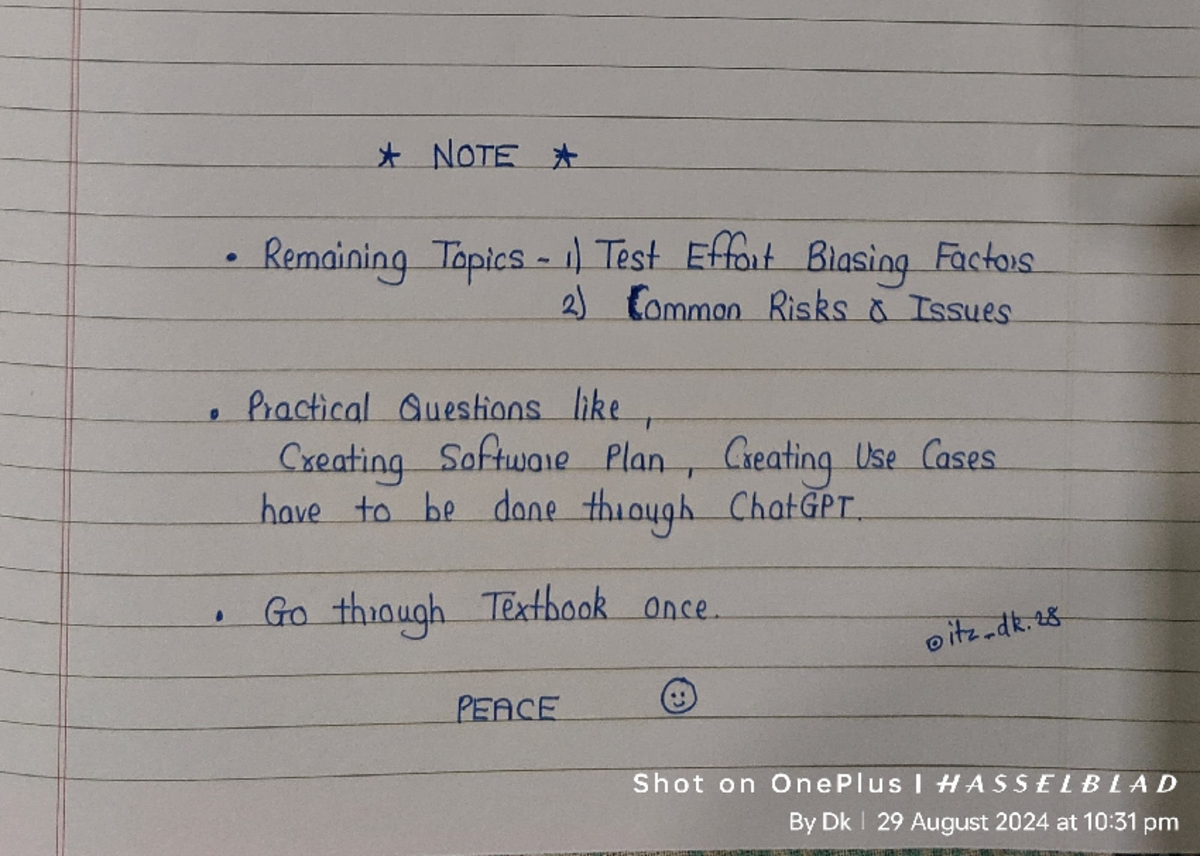 ★ NOTE ★
• Remaining Topics - 1) Test Effort Biasing Factors
2) Common Risks & Issues
• Practical Questions like,
Creating Software Plan, Creating Use Cases
have to be done through ChatGPT.
• Go through Textbook once.
@itz_dk.28
PEACE ☺
Shot on OnePlus | HASSELBLAD
By Dk | 29 August 2024 at 10:31 pm